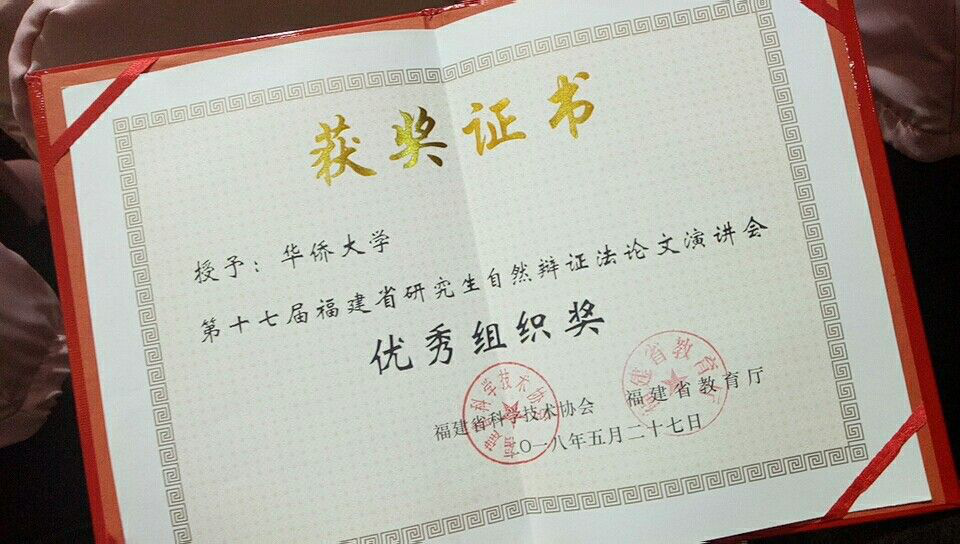 获奖证书
授予：华侨大学
第十七届福建省研究生自然辩证法论文演讲会
优秀组织奖
福建省科学技术协会 福建省教育厅
二〇一八年五月二十七日
福建省科学技术协会
福建省教育厅